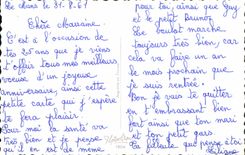 Le Mans le 31.8.67
Chère Marraine.
C'est à l'occasion de
tes 25 ans que je viens
t'offrir tous mes meilleurs
voeux d'un joyeux
anniversaire, ainsi cette
petite carte qui j'espère
te fera plaisir.
Pour moi la santé va
très bien et je pense
qu'il en est de même
pour toi, ainsi que Guy
et le petit Bruno.
Le boulot marche
toujours très bien, car
cela va faire un an
le mois prochain que
je suis rentré.
Bon je vais te quitter
en t'embrassant bien
fort ainsi que ton mari
et ton petit gars.
Ta filleule qui pense à